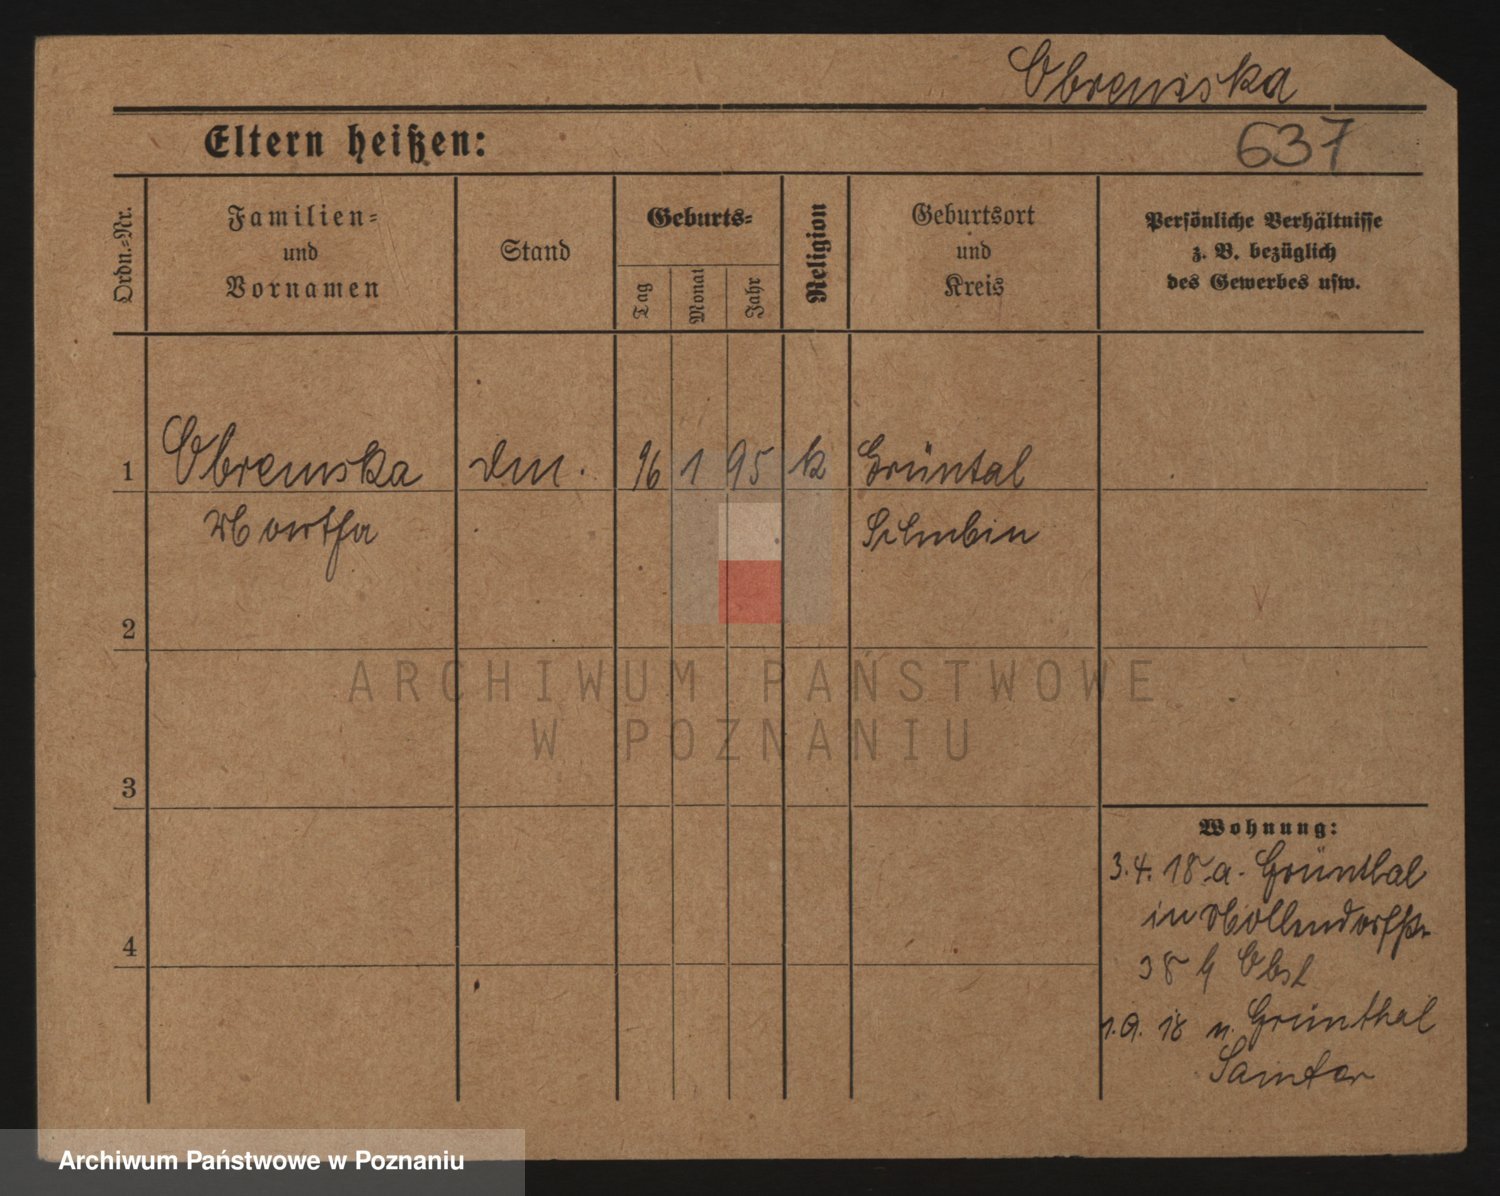 Obremska
Eltern heißen:
637
Ordn.-Nr.
Familien-
und
Vornamen
Stand
Geburts-
Tag
Monat
Jahr
Religion
Geburtsort
und
Kreis
Persönliche Verhältnisse
z. B. bezüglich
des Gewerbes usw.
1 Obremska 1 95 k Grüntal
Martha Schubin
2
ARCHIWUM PAŃSTWOWE
W POZNANIU
3
Wohnung:
3.4.18. a. Grünthal
in Möllendorfstr
38 b Obst
1.9.18 n. Grünthal
Samter
4
Archiwum Państwowe w Poznaniu